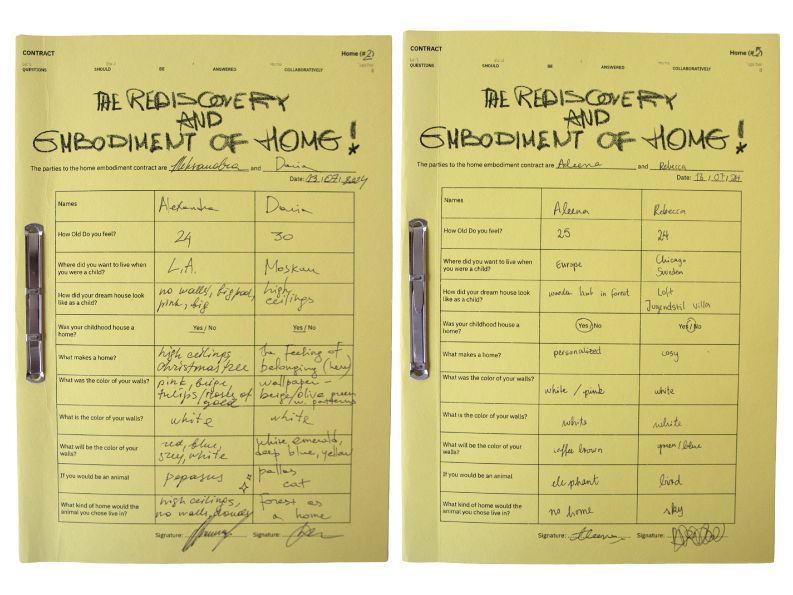 CONTRACT
Home (#2)
QUESTIONS SHOULD BE ANSWERED COLLABORATIVELY
THE REDISCOVERY
AND
EMBODIMENT OF HOME!
The parties to the home embodiment contract are Aleksandra and Daria
Date: 13/07/2024
Names Alexandra Daria
How Old Do you feel? 24 30
Where did you want to live when you were a child? L.A. Moskau
How did your dream house look like as a child? no walls, big pool, pink, big high ceilings
Was your childhood house a home? Yes / No Yes / No
What makes a home? high ceilings christmas tree the feeling of belonging (here)
What was the color of your walls? pink, beige, tulips / of gold wallpaper - beige/olive green w. patterns
What is the color of your walls? white white
What will be the color of your walls? red, blue, grey, white white, emerald, deep blue, yellow
If you would be an animal pegasus pallas cat
What kind of home would the animal you chose live in? high ceilings, no walls, clouds forest as a home
Signature: Signature:
CONTRACT
Home (#5)
QUESTIONS SHOULD BE ANSWERED COLLABORATIVELY
THE REDISCOVERY
AND
EMBODIMENT OF HOME!
The parties to the home embodiment contract are Aleena and Rebecca
Date: 13/07/24
Names Aleena Rebecca
How Old Do you feel? 25 24
Where did you want to live when you were a child? Europe Chicago Sweden
How did your dream house look like as a child? wooden hut in forest Loft Jugendstil Villa
Was your childhood house a home? Yes / No Yes / No
What makes a home? personalized cosy
What was the color of your walls? white / pink white
What is the color of your walls? white white
What will be the color of your walls? coffee brown green/blue
If you would be an animal elephant bird
What kind of home would the animal you chose live in? no home sky
Signature: Aleena Signature: